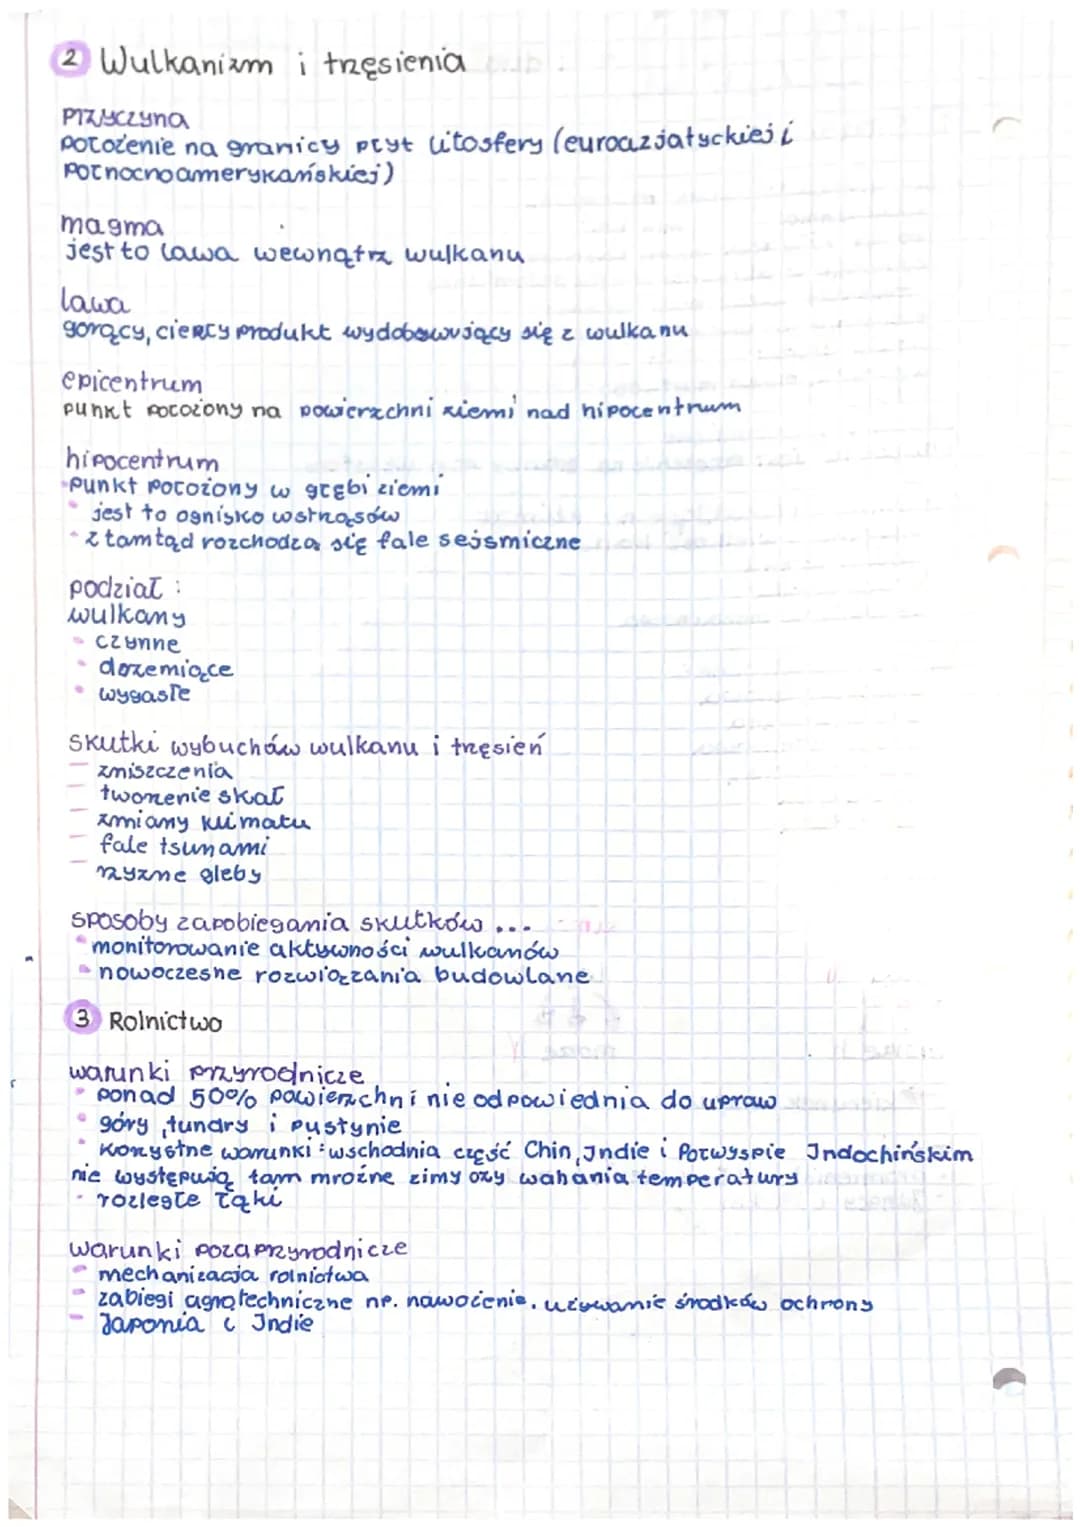 2 Wulkanizm i trzęsienia
Przyczyna
położenie na granicy płyt litosfery (euroazjatyckiej i
północnoamerykańskiej)
magma
jest to lawa wewnątrz wulkanu
lawa
gorący, ciekły produkt wydobywający się z wulkanu
epicentrum
punkt położony na powierzchni ziemi nad hipocentrum
hipocentrum
punkt położony w głębi ziemi
jest to ognisko wstrząsów
z tamtąd rozchodzą się fale sejsmiczne
podział :
wulkany
czynne
drzemiące
wygasłe
skutki wybuchów wulkanu i trzęsień
- zniszczenia
- tworzenie skał
- zmiany klimatu
- fale tsunami
- żyzne gleby
sposoby zapobiegania skutków ...
monitorowanie aktywności wulkanów
nowoczesne rozwiązania budowlane
3 Rolnictwo
warunki przyrodnicze
ponad 50% powierzchni nie odpowiednia do upraw
góry, tundry i pustynie
korzystne warunki : wschodnia część Chin, Indie i Półwyspie Indochińskim
nie występują tam mroźne zimy ozy wahania temperatury
rozległe łąki
warunki pozaprzyrodnicze
mechanizacja rolnictwa
zabiegi agrotechniczne np. nawożenie, używanie środków ochrony
Japonia i Indie